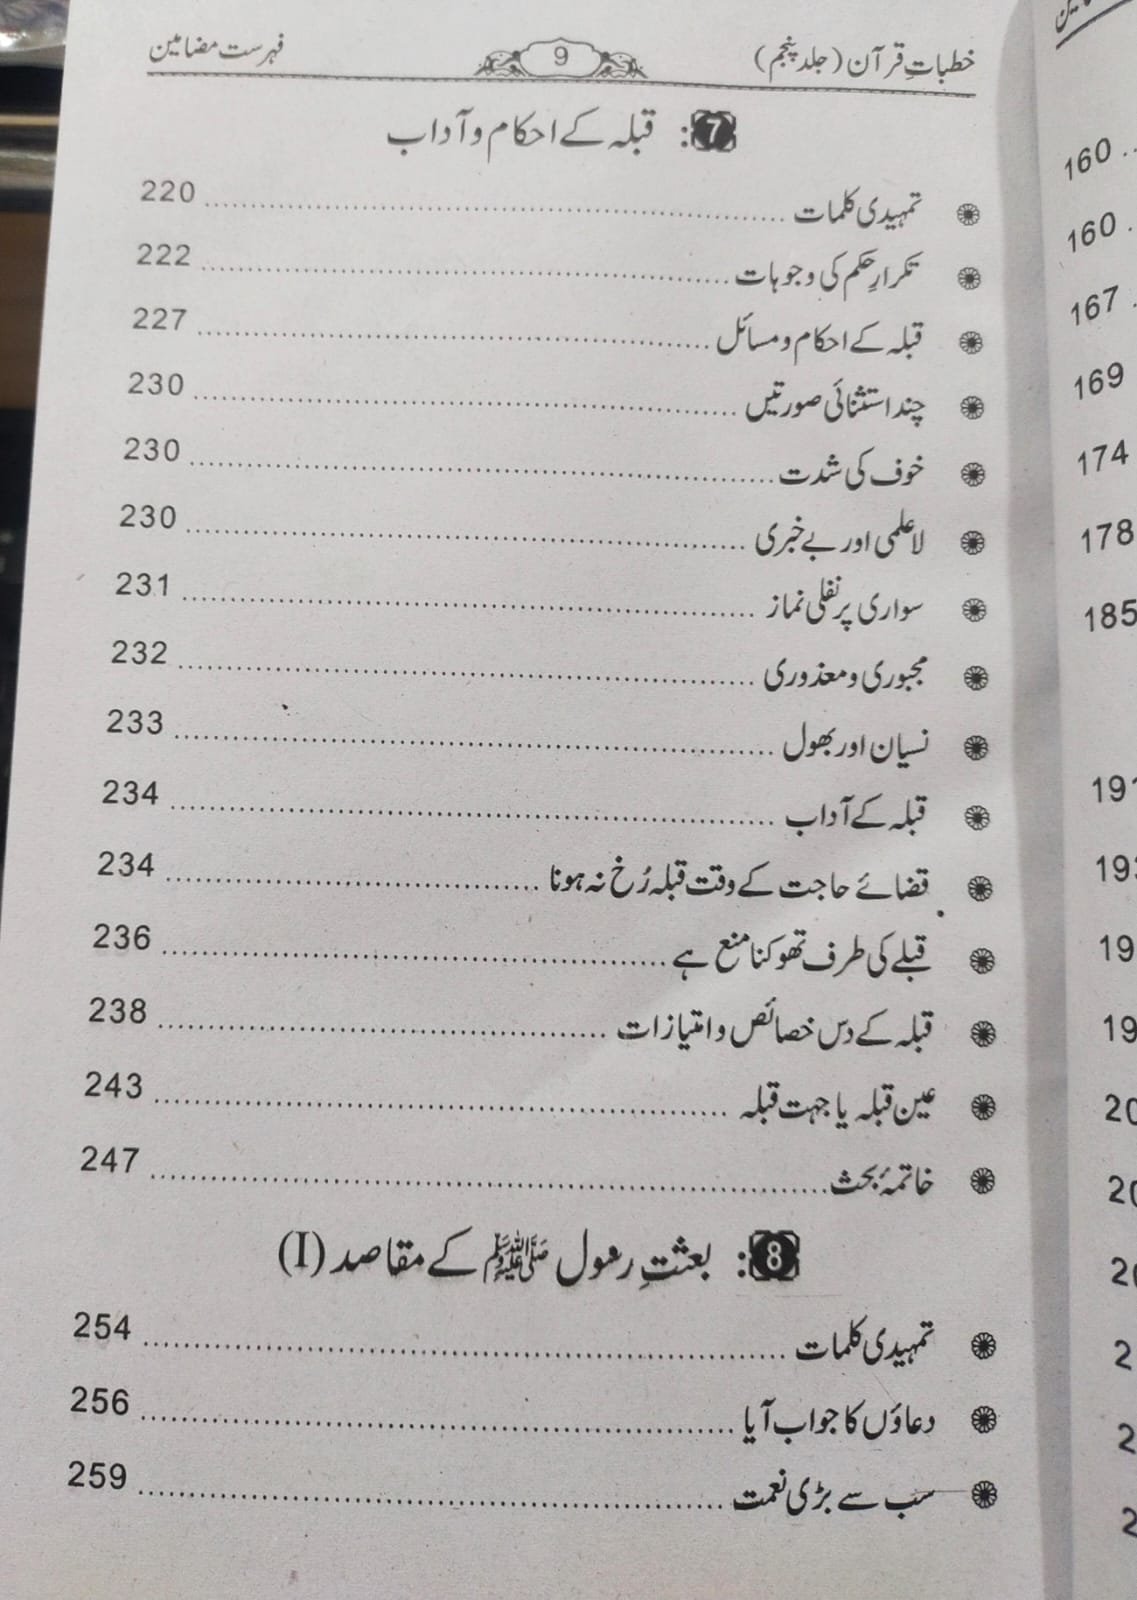 خطباتِ قرآن (جلد پنجم) 9 فہرست مضامین
7: قبلہ کے احکام و آداب
تمہیدی کلمات 220
تکرارِ حکم کی وجوہات 222
قبلہ کے احکام و مسائل 227
چند استثنائی صورتیں 230
خوف کی شدت 230
لاعلمی اور بے خبری 230
سواری پر نفلی نماز 231
مجبوری و معذوری 232
نسیان اور بھول 233
قبلہ کے آداب 234
قضائے حاجت کے وقت قبلہ رُخ نہ ہونا 234
قبلے کی طرف تھوکنا منع ہے 236
قبلہ کے دس خصائص و امتیازات 238
عین قبلہ یا جہت قبلہ 243
خاتمۂ بحث 247
8: بعثتِ رسول ﷺ کے مقاصد (I)
تمہیدی کلمات 254
دعاؤں کا جواب آیا 256
سب سے بڑی نعمت 259
160
160
167
169
174
178
185